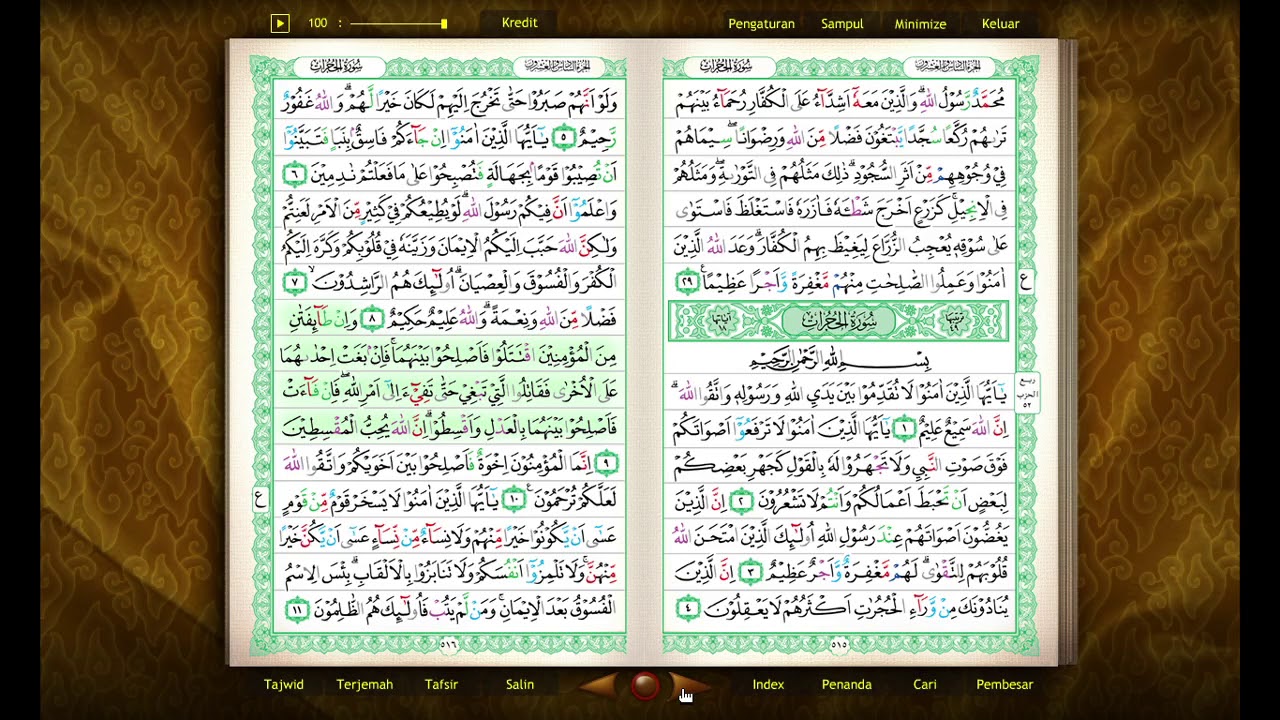 100 :
Kredit
Pengaturan Sampul Minimize Keluar
سورة الحجرات
الجزء السادس والعشرون
مُحَمَّدٌ رَّسُوْلُ اللّٰهِ ۗوَالَّذِيْنَ مَعَهٗٓ اَشِدَّاۤءُ عَلَى الْكُفَّارِ رُحَمَاۤءُ بَيْنَهُمْ
تَرٰىهُمْ رُكَّعًا سُجَّدًا يَّبْتَغُوْنَ فَضْلًا مِّنَ اللّٰهِ وَرِضْوَانًا ۖ سِيْمَاهُمْ
فِيْ وُجُوْهِهِمْ مِّنْ اَثَرِ السُّجُوْدِ ۗذٰلِكَ مَثَلُهُمْ فِى التَّوْرٰىةِ ۖوَمَثَلُهُمْ
فِى الْاِنْجِيْلِۚ كَزَرْعٍ اَخْرَجَ شَطْـَٔهٗ فَاٰزَرَهٗ فَاسْتَغْلَظَ فَاسْتَوٰى
عَلٰى سُوْقِهٖ يُعْجِبُ الزُّرَّاعَ لِيَغِيْظَ بِهِمُ الْكُفَّارَ ۗوَعَدَ اللّٰهُ الَّذِيْنَ
اٰمَنُوْا وَعَمِلُوا الصّٰلِحٰتِ مِنْهُمْ مَّغْفِرَةً وَّاَجْرًا عَظِيْمًا ࣖ ٢٩
ع
سورة الحجرات
بِسْمِ اللّٰهِ الرَّحْمٰنِ الرَّحِيْمِ
يٰٓاَيُّهَا الَّذِيْنَ اٰمَنُوْا لَا تُقَدِّمُوْا بَيْنَ يَدَيِ اللّٰهِ وَرَسُوْلِهٖ وَاتَّقُوا اللّٰهَ ۗ
ربع الحزب ٥٢
اِنَّ اللّٰهَ سَمِيْعٌ عَلِيْمٌ ١ يٰٓاَيُّهَا الَّذِيْنَ اٰمَنُوْا لَا تَرْفَعُوْٓا اَصْوَاتَكُمْ
فَوْقَ صَوْتِ النَّبِيِّ وَلَا تَجْهَرُوْا لَهٗ بِالْقَوْلِ كَجَهْرِ بَعْضِكُمْ
لِبَعْضٍ اَنْ تَحْبَطَ اَعْمَالُكُمْ وَاَنْتُمْ لَا تَشْعُرُوْنَ ٢ اِنَّ الَّذِيْنَ
يَغُضُّوْنَ اَصْوَاتَهُمْ عِنْدَ رَسُوْلِ اللّٰهِ اُولٰۤىِٕكَ الَّذِيْنَ امْتَحَنَ اللّٰهُ
قُلُوْبَهُمْ لِلتَّقْوٰىۗ لَهُمْ مَّغْفِرَةٌ وَّاَجْرٌ عَظِيْمٌ ٣ اِنَّ الَّذِيْنَ
يُنَادُوْنَكَ مِنْ وَّرَاۤءِ الْحُجُرٰتِ اَكْثَرُهُمْ لَا يَعْقِلُوْنَ ٤
٥١٥
سورة الحجرات
الجزء السادس والعشرون
وَلَوْ اَنَّهُمْ صَبَرُوْا حَتّٰى تَخْرُجَ اِلَيْهِمْ لَكَانَ خَيْرًا لَّهُمْ ۗوَاللّٰهُ غَفُوْرٌ
رَّحِيْمٌ ٥ يٰٓاَيُّهَا الَّذِيْنَ اٰمَنُوْٓا اِنْ جَاۤءَكُمْ فَاسِقٌۢ بِنَبَاٍ فَتَبَيَّنُوْٓا
اَنْ تُصِيْبُوْا قَوْمًاۢ بِجَهَالَةٍ فَتُصْبِحُوْا عَلٰى مَا فَعَلْتُمْ نٰدِمِيْنَ ٦
وَاعْلَمُوْٓا اَنَّ فِيْكُمْ رَسُوْلَ اللّٰهِ ۗ لَوْ يُطِيْعُكُمْ فِيْ كَثِيْرٍ مِّنَ الْاَمْرِ لَعَنِتُّمْ
وَلٰكِنَّ اللّٰهَ حَبَّبَ اِلَيْكُمُ الْاِيْمَانَ وَزَيَّنَهٗ فِيْ قُلُوْبِكُمْ وَكَرَّهَ اِلَيْكُمُ
الْكُفْرَ وَالْفُسُوْقَ وَالْعِصْيَانَ ۗ اُولٰۤىِٕكَ هُمُ الرَّاشِدُوْنَ ۙ ٧
فَضْلًا مِّنَ اللّٰهِ وَنِعْمَةً ۗ وَاللّٰهُ عَلِيْمٌ حَكِيْمٌ ٨ وَاِنْ طَاۤىِٕفَتٰنِ
مِنَ الْمُؤْمِنِيْنَ اقْتَتَلُوْا فَاَصْلِحُوْا بَيْنَهُمَاۚ فَاِنْۢ بَغَتْ اِحْدٰىهُمَا
عَلَى الْاُخْرٰى فَقَاتِلُوا الَّتِيْ تَبْغِيْ حَتّٰى تَفِيْۤءَ اِلٰٓى اَمْرِ اللّٰهِ ۖفَاِنْ فَاۤءَتْ
فَاَصْلِحُوْا بَيْنَهُمَا بِالْعَدْلِ وَاَقْسِطُوْا ۗاِنَّ اللّٰهَ يُحِبُّ الْمُقْسِطِيْنَ
٩ اِنَّمَا الْمُؤْمِنُوْنَ اِخْوَةٌ فَاَصْلِحُوْا بَيْنَ اَخَوَيْكُمْ وَاتَّقُوا اللّٰهَ
لَعَلَّكُمْ تُرْحَمُوْنَ ࣖ ١٠ يٰٓاَيُّهَا الَّذِيْنَ اٰمَنُوْا لَا يَسْخَرْ قَوْمٌ مِّنْ قَوْمٍ
ع
عَسٰٓى اَنْ يَّكُوْنُوْا خَيْرًا مِّنْهُمْ وَلَا نِسَاۤءٌ مِّنْ نِّسَاۤءٍ عَسٰٓى اَنْ يَّكُنَّ خَيْرًا
مِّنْهُنَّۚ وَلَا تَلْمِزُوْٓا اَنْفُسَكُمْ وَلَا تَنَابَزُوْا بِالْاَلْقَابِۗ بِئْسَ الِاسْمُ
الْفُسُوْقُ بَعْدَ الْاِيْمَانِۚ وَمَنْ لَّمْ يَتُبْ فَاُولٰۤىِٕكَ هُمُ الظّٰلِمُوْنَ ١١
٥١٦
Tajwid Terjemah Tafsir Salin
Index Penanda Cari Pembesar